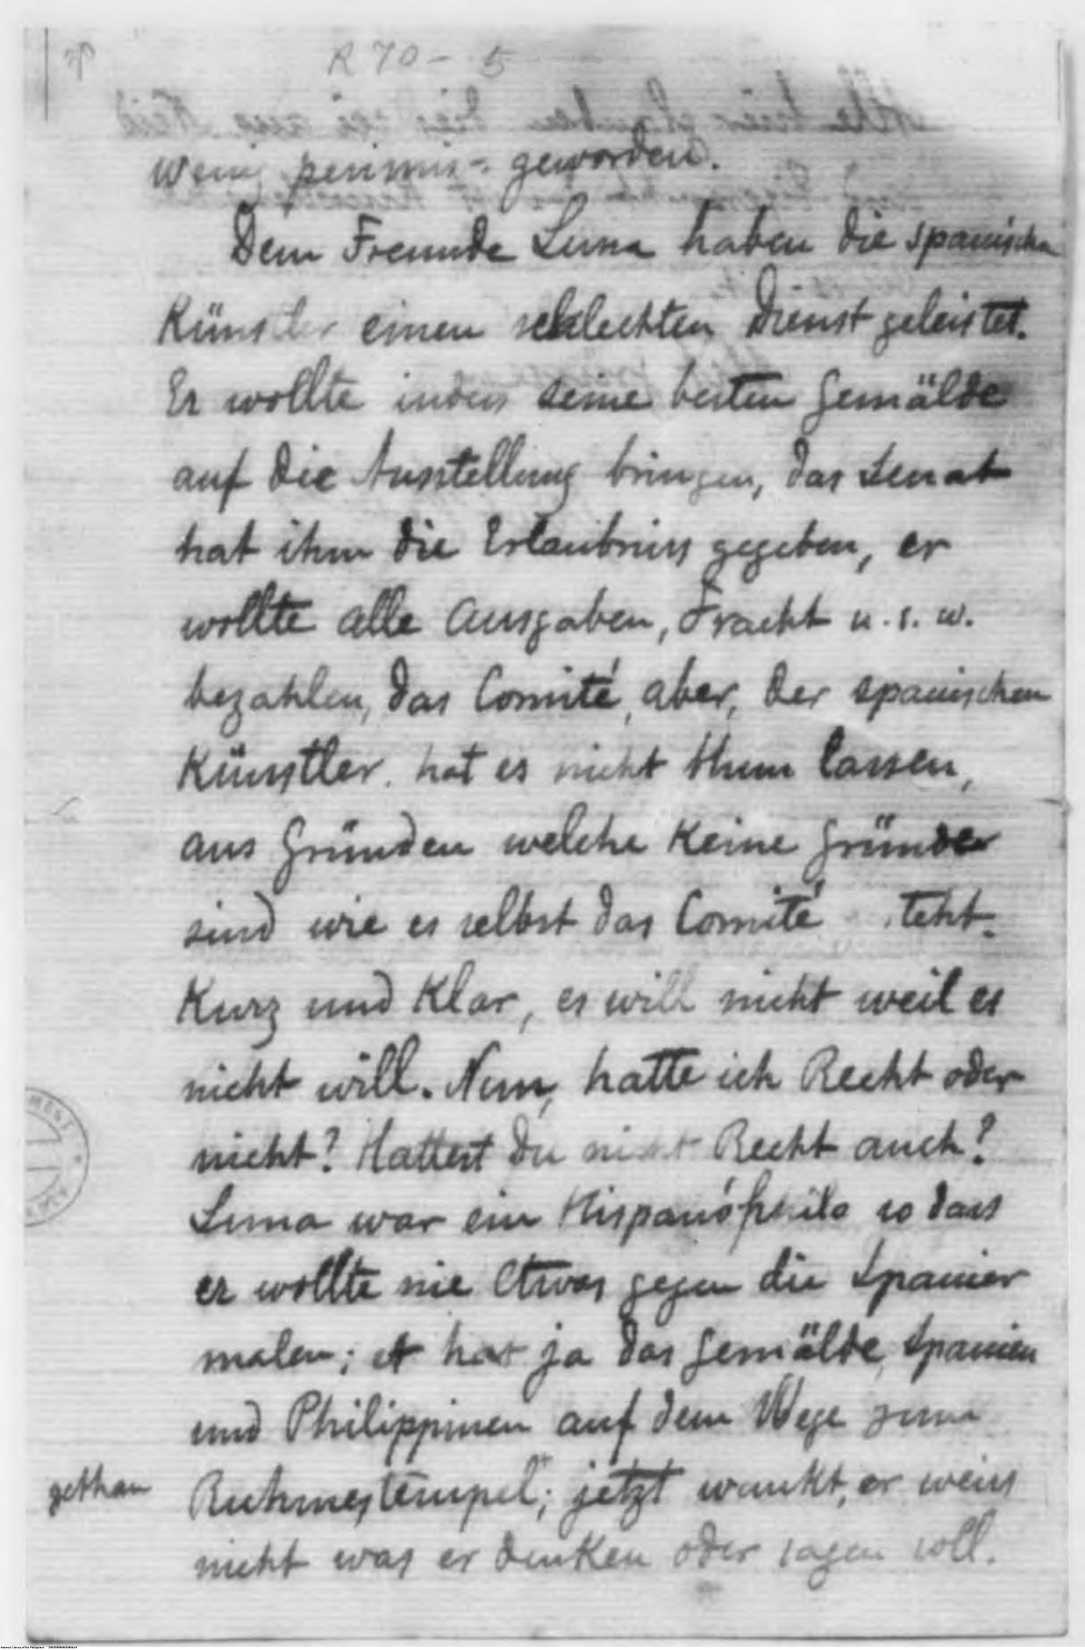 R 70 - 5
wenig pessimis- geworden.
Dem Freunde Luna haben die spanischen
Künstler einen schlechten Dienst geleistet.
Er wollte indess seine besten Gemälde
auf die Ausstellung bringen, das Senat
hat ihm die Erlaubniss gegeben, er
wollte alle Ausgaben, Fracht u. s. w.
bezahlen, das Comité, aber, der spanischen
Künstler, hat es nicht thun lassen,
aus Gründen welche Keine Gründe
sind wie es selbst das Comité
Kurz und Klar, es will nicht weil es
nicht will. Nun, hatte ich Recht oder
nicht? Hattest Du nicht Recht auch?
Luna war ein Hispanóphilo so dass
er wollte nie Etwas gegen die Spanier
malen; er hat ja das Gemälde, Spanien
und Philippinen auf dem Wege zum
gethan Ruhmestempel"; jetzt wankt, er weiss
nicht was er denken oder sagen soll.